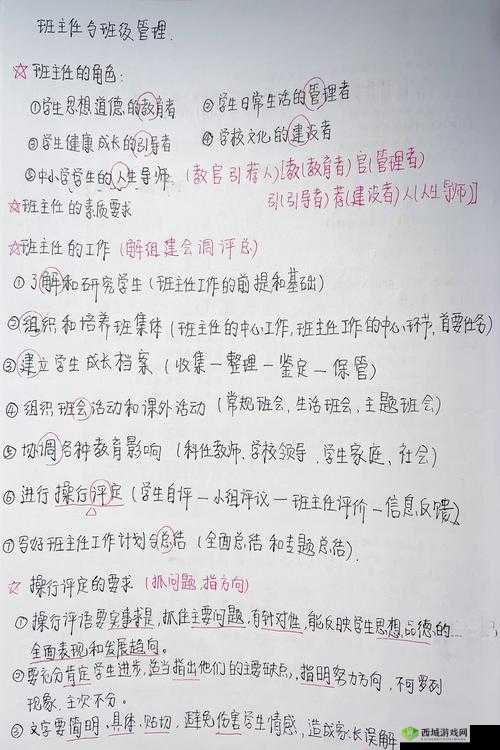 班主任与班级管理.
☆班主任的角色:
①学生思想道德的教育者 ②学生日常生活的管理者
③学生健康成长的引导者 ④学校文化的建设者
⑤中小学学生的人生导师 (教官引荐人)[教(教育者)官(管理者)
引(引导者)荐(建设者)人(人生导师)]
☆班主任的素质要求
☆班主任的工作(解组建会调评总)
①了解和研究学生(班主任工作的前提和基础)
②组织和培养班集体(班主任的中心工作,班主任工作的中心环节,首要任务)
③建立学生成长档案(收集—整理—鉴定—保管)
④组织班会活动和课外活动(常规班会,生活班会,主题班会)
⑤协调各种教育影响(科任教师、学校领导、学生家庭、社会)
⑥进行操行评定(学生自评—小组评议—班主任评价—信息反馈)
⑦写好班主任工作计划与总结(全面总结和专题总结).
☆操行评定的要求(抓问题,指方向)
①操行评语要实事求是,抓住主要问题,有针对性,能反映学生思想品德的...
全面表现和发展趋向。
②要充分肯定学生进步,适当指出他们的主要缺点,指明努力方向,不可罗列
现象、主次不分。
③文字要简明、具体、贴切,避免伤害学生情感,造成家长误解
西城游戏网